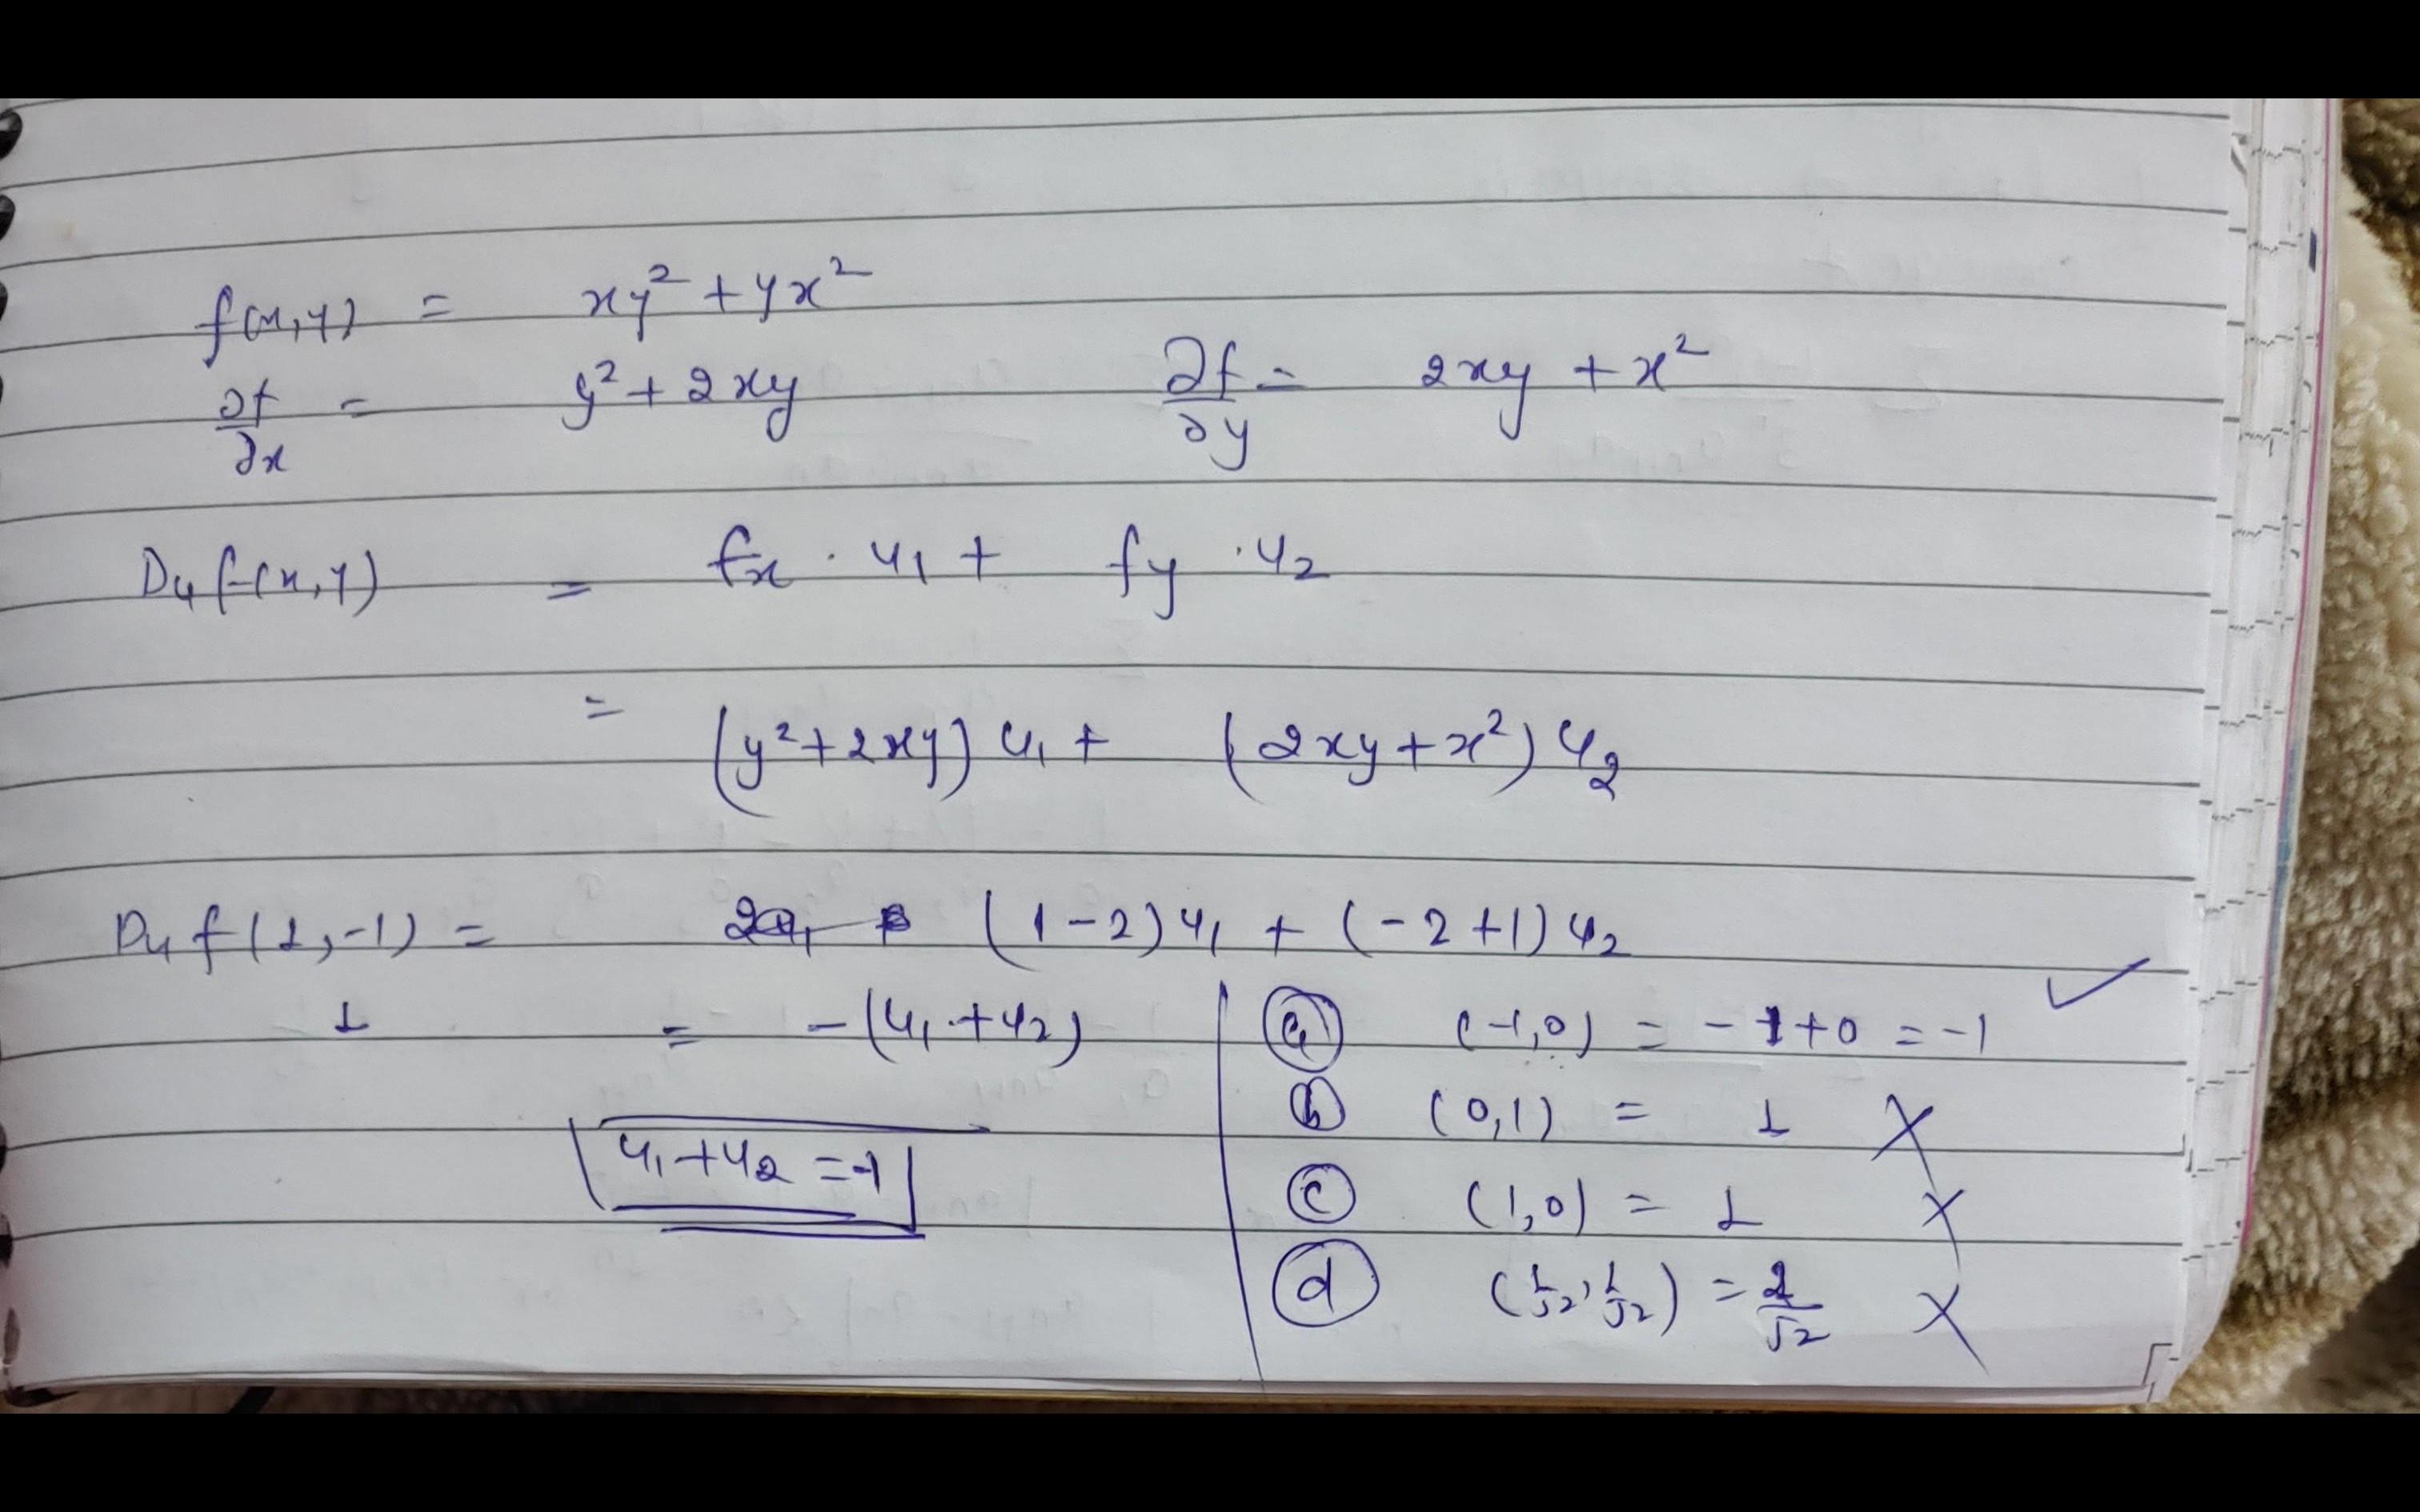 f(x,y) = xy² + yx²
∂f/∂x = y² + 2xy ∂f/∂y = 2xy + x²
Du f(x,y) = fx · u1 + fy · u2
= (y² + 2xy) u1 + (2xy + x²) u2
Du f(1,-1) = (1-2) u1 + (-2+1) u2
1 = -(u1 + u2)
u1 + u2 = -1
a (-1,0) = -1+0 = -1 ✓
b (0,1) = 1 X
c (1,0) = 1 X
d (1/√2, 1/√2) = 2/√2 X